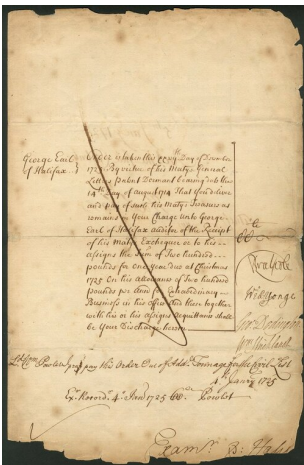 George Earl
of Halifax
Order is taken this XXVIIth Day of December
1725 By virtue of his Maty's General
Letters patent Dormant bearing date the
14th Day of August 1714 That You deliver
and pay of such his Maty's Treasure as
remains in Your Charge Unto George
Earl of Halifax Auditor of the Receipt
of his Maty's Exchequer or to his
assigns the Sum of Two hundred
pounds for one Year Due at Christmas
1725 On his Allowance of Two hundred
pounds per Ann for Extraordinary
Business in his Office And these together
with his or his Assigns Acquittance shall
be Your Discharge herein
R Walpole
Wm Yonge
Geo: Dodington
pay this Order Out of Add Tonnage for the Civil List
4th January 1725
Ex Record 4° Janu 1725
Exam
Halifax